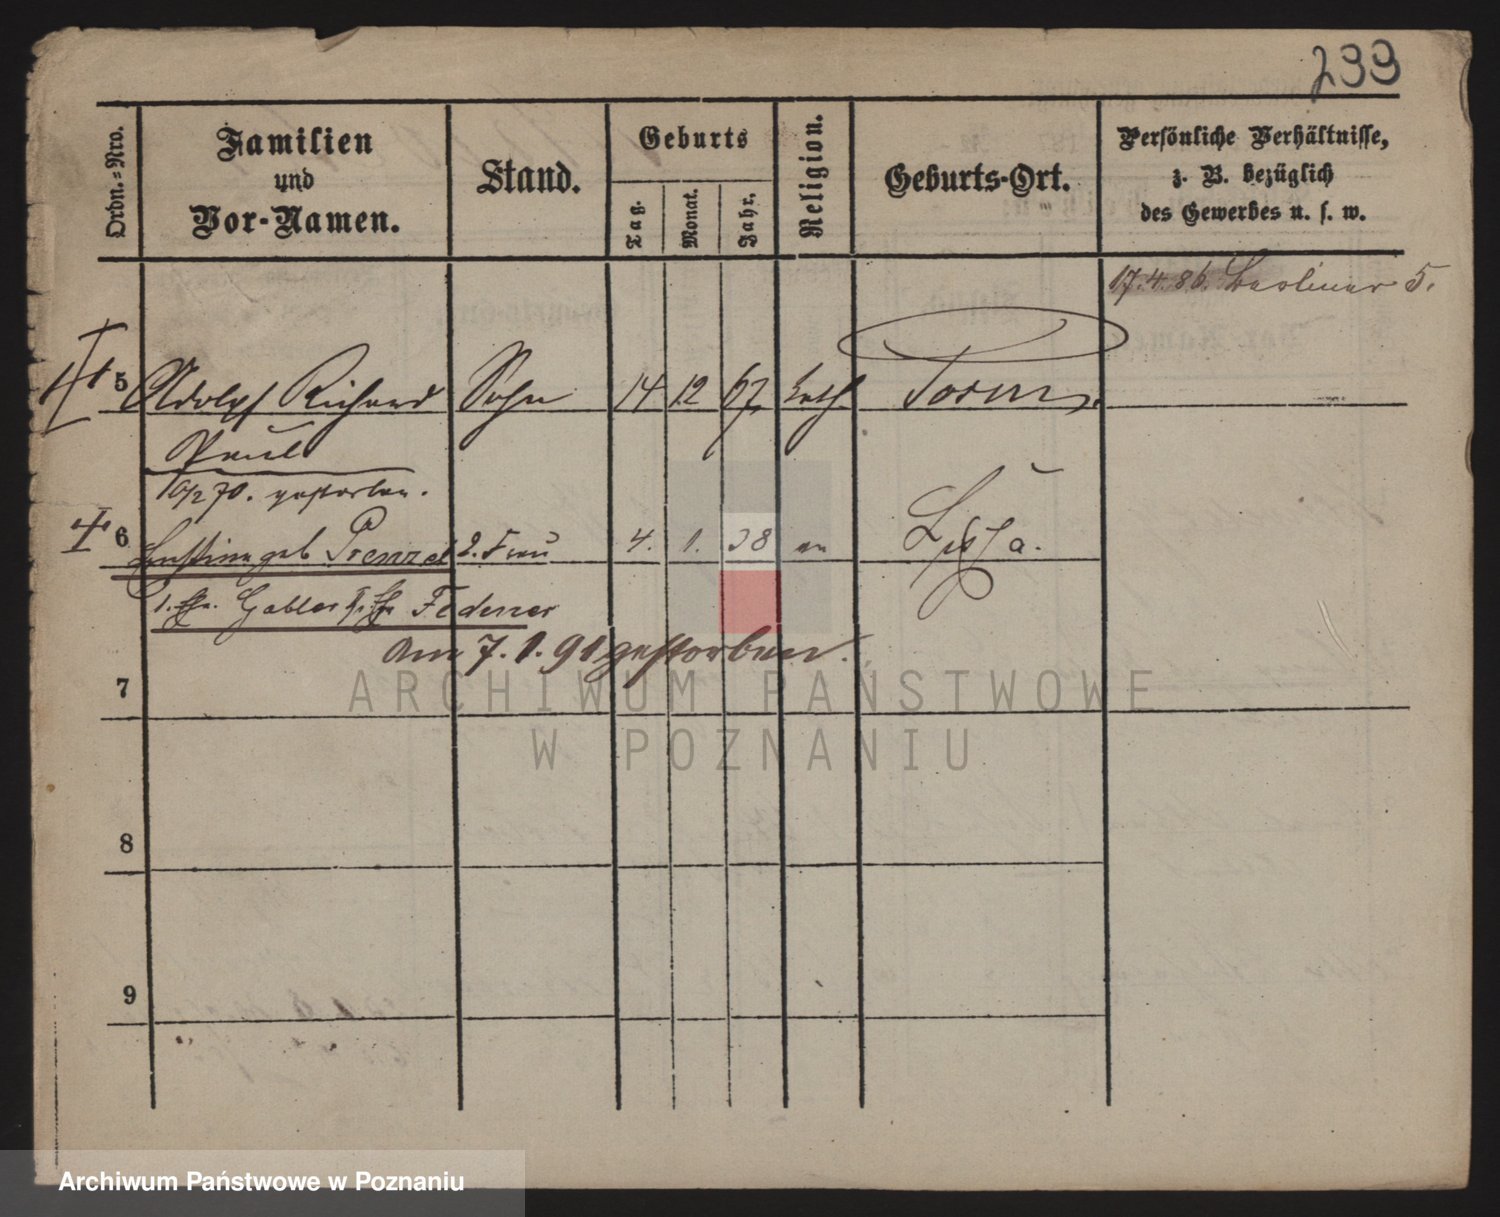 299
Ordn.-Nro.
Familien
und
Vor-Namen.
Stand.
Geburts
Tag.
Monat.
Jahr.
Religion.
Geburts-Ort.
Persönliche Verhältnisse,
z. B. bezüglich
des Gewerbes u. s. w.
17.4.86. Berliner 5.
5 Adolph Richard Sohn 14 12 67 kath Posen
Paul
70. gestorben.
6 geb Prenzel 2. Frau 4. 1. 38 ev Lissa.
1. Gabler Federer
am 7.1.91 gestorben.
7
8
9
ARCHIWUM PAŃSTWOWE
W POZNANIU
Archiwum Państwowe w Poznaniu